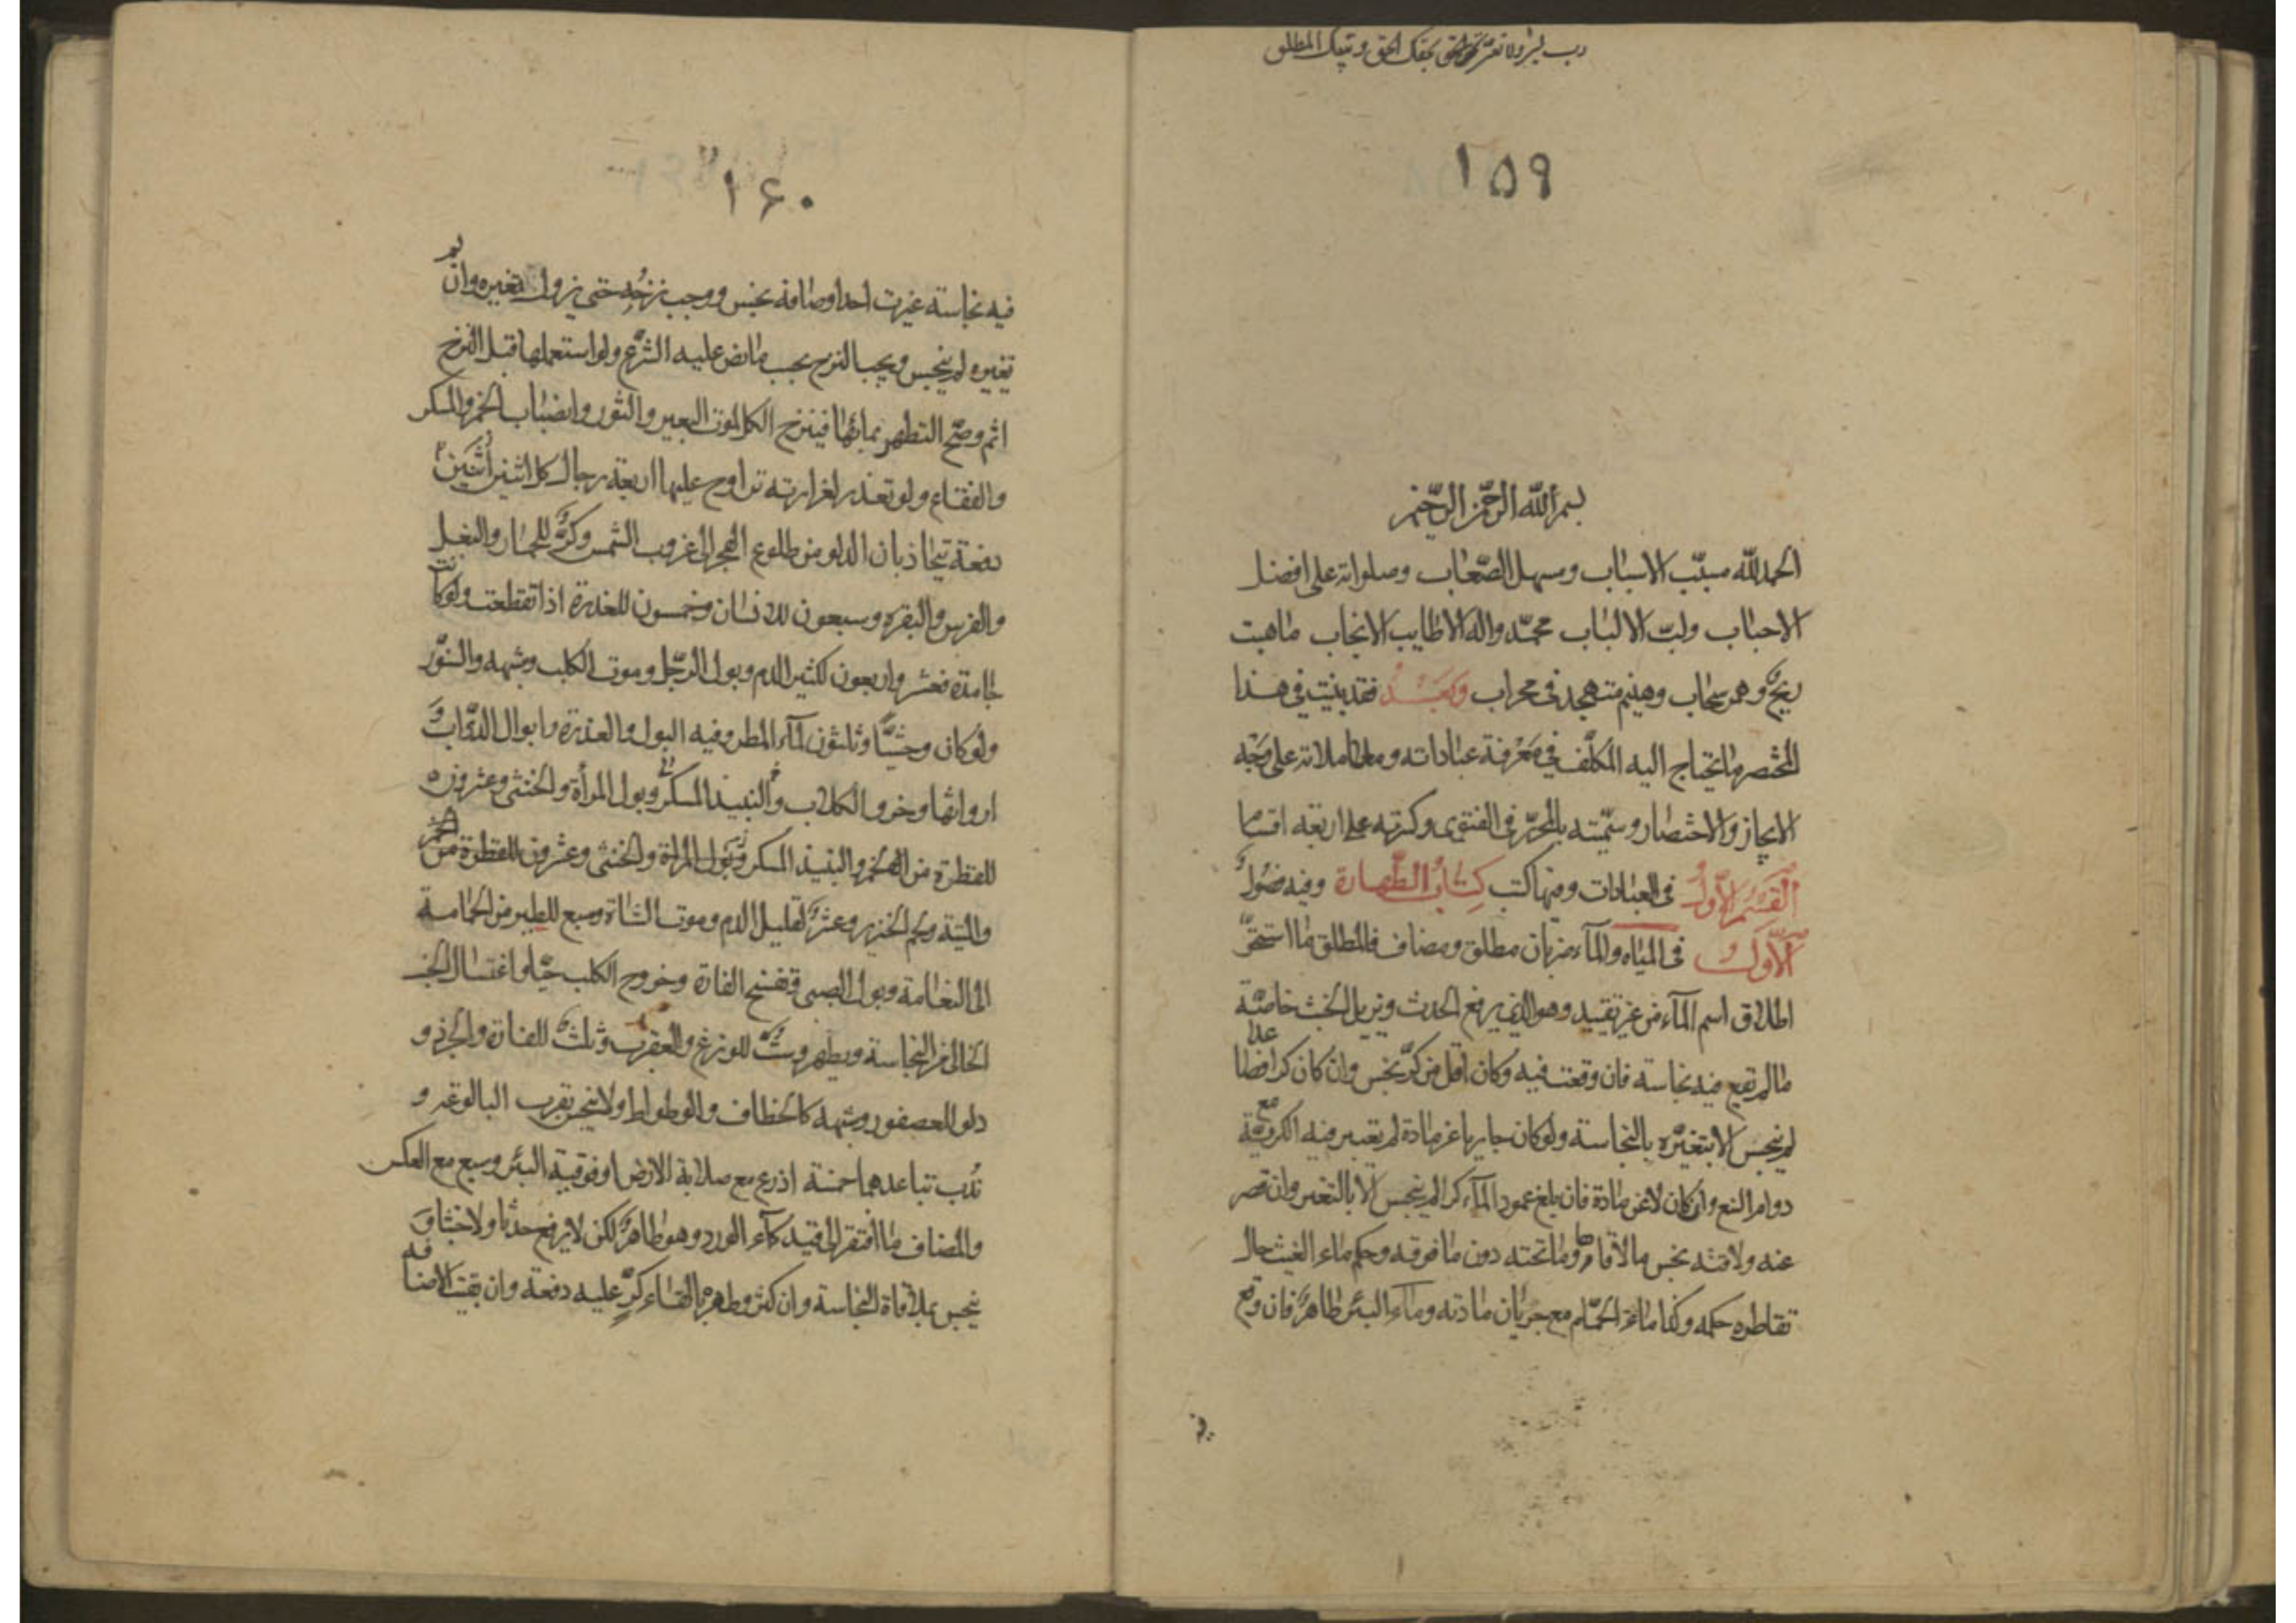 رب يسر ولا تعسر بحقك الحق وقيك المطلق
١۵٩
بسم الله الرحمن الرحيم
الحمد لله مسبّب الاسباب ومسهل الصّعاب وصلواته على افضل
الاحباب ولبّ الالباب محمّد واله الاطايب الانجاب ماهبت
ريحٌ وهمر سحاب وهينم متهجد فى محراب وبعد فقد بينت في هذا
المختصر ما يحتاج اليه المكلّف في معرفة عباداته ومعاملاته على وجه
الايجاز والاختصار وسمّيته بالمحرّر فى الفتوى وكسرته على اربعة اقسام
القسم الاوّل فى العبادات ومنها كتب كتاب الطهارة وفيه فصول
الاوّل فى المياه والمآء ضربان مطلق ومضاف فالمطلق ما استحقّ
اطلاق اسم المآء من غير تقييد وهو الذي يرفع الحدث ويزيل الخبث خاصّة
مالم تقع فيه نجاسة فان وقعت فيه وكان اقل من كرٍّ نجس وان كان كرا فصاعدا
لم ينجس الا بتغيّره بالنجاسة ولو كان جاريا عن مادة لم تعتبر فيه الكرية مع
دوام النبع وان كان لا عن مادة فان بلغ عمود المآء كرا لم ينجس الا بالتغير وان قصر
عنه ولاقته نجس ما لاقاها وما تحته دون ما فوقه وحكم ماء الغيث حال
تقاطره حكمه وكذا ماء الحمّام مع جريان مادته وماء البئر طاهرٌ فان وقع
١۶٠
فيه نجاسة غيرت احد اوصافه نجس ووجب نزحه حتى يزول تغيره وان لم
تغيره لم ينجس ويجب النزح بحسب ما نص عليه الشرع ولو استعملها قبل النزح
اثم وصحّ التطهر بمائها فينزح الكل لموت البعير والثور وانصباب الخمر والمسكر
والفقاع ولو تعذر لغزارته تراوح عليها اربعة رجال كل اثنين اثنين
دفعة يتجاذبان الدلو من طلوع الفجر الى غروب الشمس وكرٌّ للحمار والبغل
والفرس والبقره وسبعون للانسان وخمسون للعذرة اذا تقطعت ولو كانت
جامدة فعشر واربعون لكثير الدم وبول الرّجل وموت الكلب وشبهه والسنّور
ولو كان وحشيًّا وثلثون لمآء المطر وفيه البول والعذرة وابوال الدّوابّ و
ارواثها وخرو الكلاب والنبيذ المسكر وبول المرأة والخنثى وعشرون
للقطرة من الخمر والنبيذ المسكر وبول المراة والخنثى وعشرون للقطرة من الخمر
والميتة ولحم الخنزير وعشرٌ لقليل الدم وموت الشاة وسبع للطير من الحمامة
الى النعامة وبول الصبى وتفسخ الفارة وخروج الكلب حيّا واغتسال الجنب
الخالى من النجاسة ويطهر وستٌّ للوزغ والعقرب وثلثٌ للفارة والجرذ و
دلو للعصفور وشبهه كالخطاف والوطواط ولا ينجس بقرب البالوعة و
ندب تباعدهما خمسة اذرع مع صلابة الارض او فوقية البئر وسبع مع العكس
والمضاف ما افتقر الى قيد كمآء الورد وهو طاهرٌ لكن لا يرفع حدثا ولا خبثا و
ينجس بملاقاة النجاسة وان كثر وطهره بالقاء كرٍّ عليه دفعة وان بقيت الاضافه